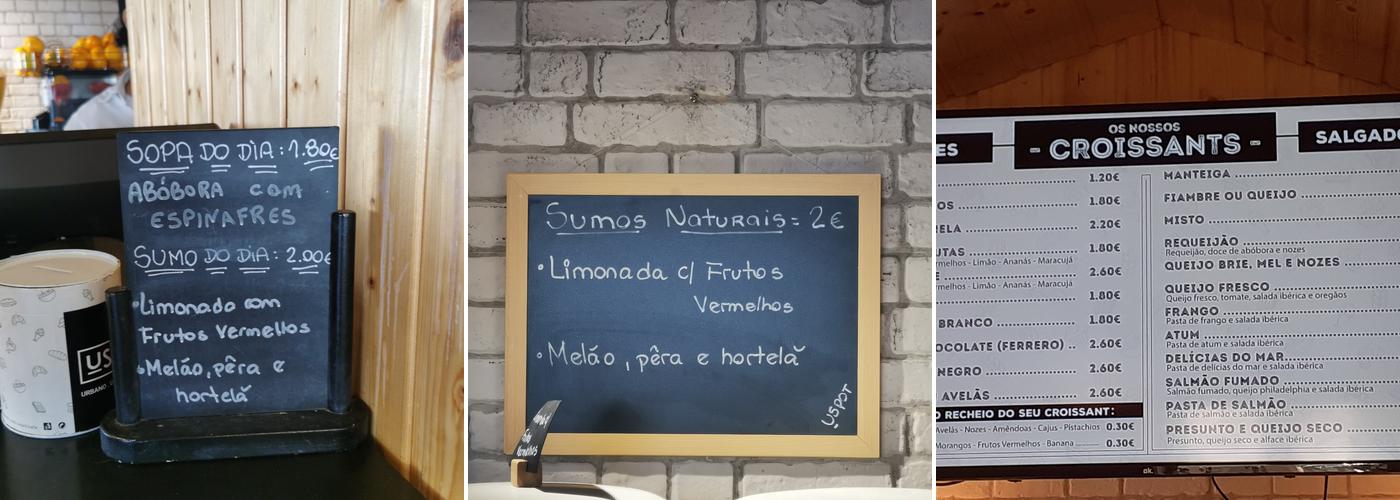 SOPA DO DIA: 1.80€
ABÓBORA COM
ESPINAFRES
SUMO DO DIA: 2.00€
•Limonada com
Frutos Vermelhos
•Melão, pêra e
hortelã
US
URBANO
Sumos Naturais = 2€
•Limonada c/ Frutos
Vermelhos
•Melão, pêra e hortelã
USPOT
OS NOSSOS
- CROISSANTS -
ES
1.20€
OS 1.80€
ELA 2.20€
UTAS 1.80€
rmelhos - Limão - Ananás - Maracujá
E 2.60€
rmelhos - Limão - Ananás - Maracujá
1.80€
BRANCO 1.80€
OCOLATE (FERRERO) .. 2.60€
NEGRO 2.60€
AVELÃS 2.60€
O RECHEIO DO SEU CROISSANT:
Avelãs - Nozes - Amêndoas - Cajus - Pistachios 0.30€
Morangos - Frutos Vermelhos - Banana 0.30€
SALGAD
MANTEIGA
FIAMBRE OU QUEIJO
MISTO
REQUEIJÃO
Requeijão, doce de abóbora e nozes
QUEIJO BRIE, MEL E NOZES
QUEIJO FRESCO
Queijo fresco, tomate, salada ibérica e oregãos
FRANGO
Pasta de frango e salada ibérica
ATUM
Pasta de atum e salada ibérica
DELÍCIAS DO MAR
Pasta de delícias do mar e salada ibérica
SALMÃO FUMADO
Salmão fumado, queijo philadelphia e salada ibérica
PASTA DE SALMÃO
Pasta de salmão e salada ibérica
PRESUNTO E QUEIJO SECO
Presunto, queijo seco e alface ibérica
ok.